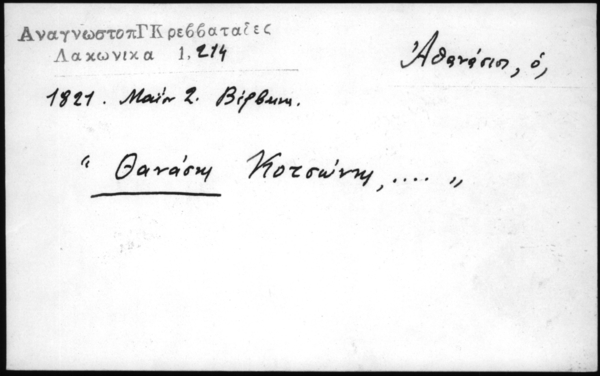 ΑναγνωστοπΓΚρεββαταῖες
Λακωνικα 1, 214
Ἀθανάσιος, ὁ,
1821. Μαΐου 2. Βέρβενα.
" Θανάσης Κοτσώνης, .... "